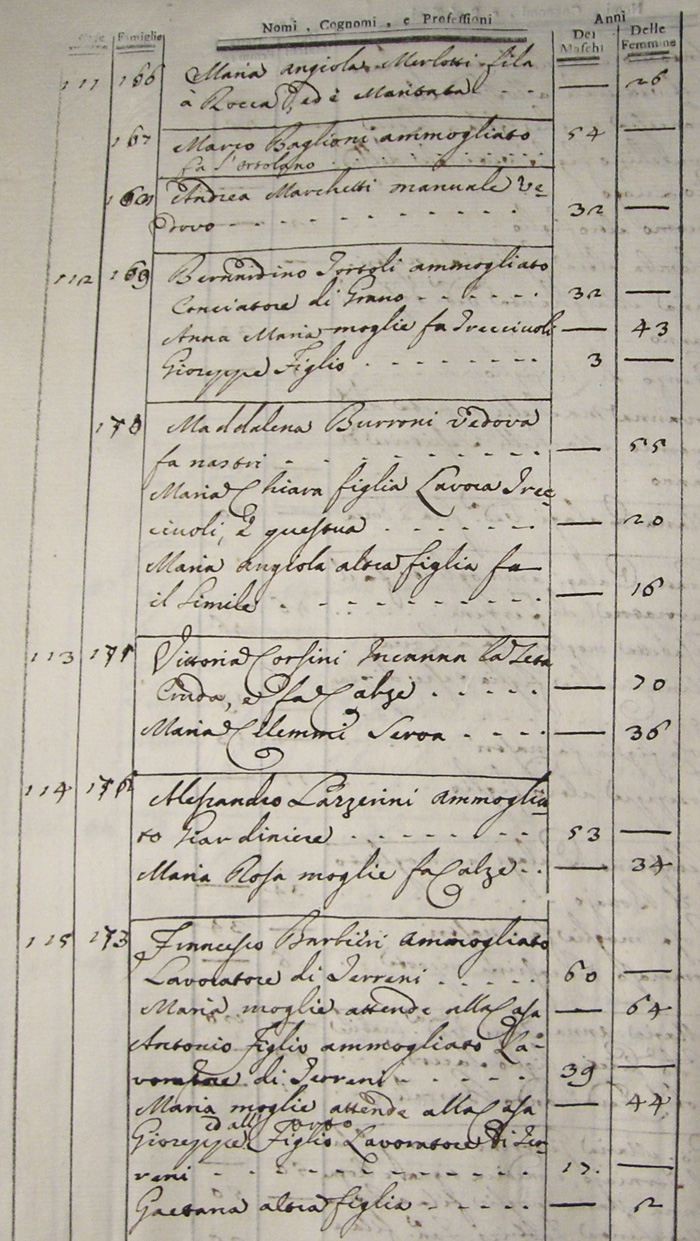 Case Famiglie Nomi, Cognomi, e Professioni Anni
Dei Maschi Delle Femmine
111 166 Maria Angiola Merlotti fila
à Rocca, ed è Maritata - - — 26
167 Marco Baglioni ammogliato 54 —
fa l'ortolano
168 Andrea Marchetti manuale Ve=
dovo - - - - - - - - 32 —
112 169 Bernardino Tortoli ammogliato
Conciatore di Grano - - - - - 32 —
Anna Maria moglie fa Treccivoli — 43
Giuseppe Figlio - - - - - - - 3 —
170 Maddalena Burroni Vedova
fa nastri - - - - - - - - — 55
Maria Chiara figlia Lavora Trec=
civoli, e questua - - - - - — 20
Maria Angiola altra figlia fa
il Simile - - - - - - - - — 16
113 171 Vittoria Corsini Incanna la Seta
Cruda, e fa Calze - - - - - — 70
Maria Clemmi Serva - - - - — 36
114 172 Alessandro Lazzerini Ammoglia=
to Giardiniere - - - - - - - 53 —
Maria Rosa moglie fa Calze - - — 34
115 173 Francesco Barbieri Ammogliato
Lavoratore di Terreni - - - - - 60 —
Maria moglie attende alla Casa — 64
Antonio Figlio ammogliato La=
voratore di Terreni - - - - - 39 —
Maria moglie attende alla Casa — 44
Giuseppe Figlio Lavoratore di Ter=
reni - - - - - - - - - 17 —
Gaetana altra figlia - - - - - — 2